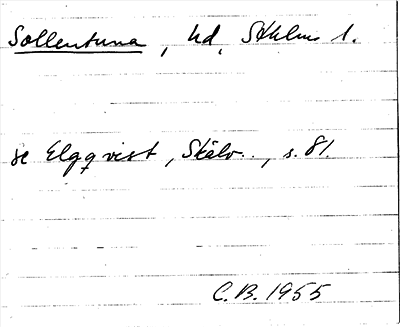 Sollentuna, hd, Sthlms l.
se Elgqvist, Skälv.., s. 81.
C.B. 1955